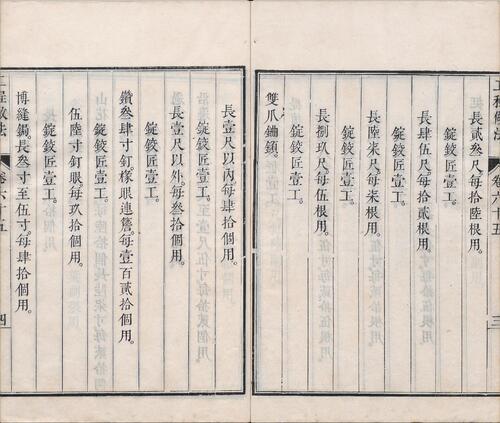 工程做法
卷六十五
三
長貳叁尺。每拾陸根用。
錠鉸匠壹工。
長肆伍尺。每拾貳根用。
錠鉸匠壹工。
長陸柒尺。每柒根用。
錠鉸匠壹工。
長捌玖尺。每伍根用。
錠鉸匠壹工。
雙爪鍤鎖。
長壹尺以內。每肆拾個用。
錠鉸匠壹工。
長壹尺以外。每叁拾個用。
錠鉸匠壹工。
鑽叁肆寸釘樣眼連簷。每壹百貳拾個用。
錠鉸匠壹工。
伍陸寸釘眼。每玖拾個用。
錠鉸匠壹工。
博縫鋦。長叁寸至伍寸。每肆拾個用。
工程做法
卷六十五
四